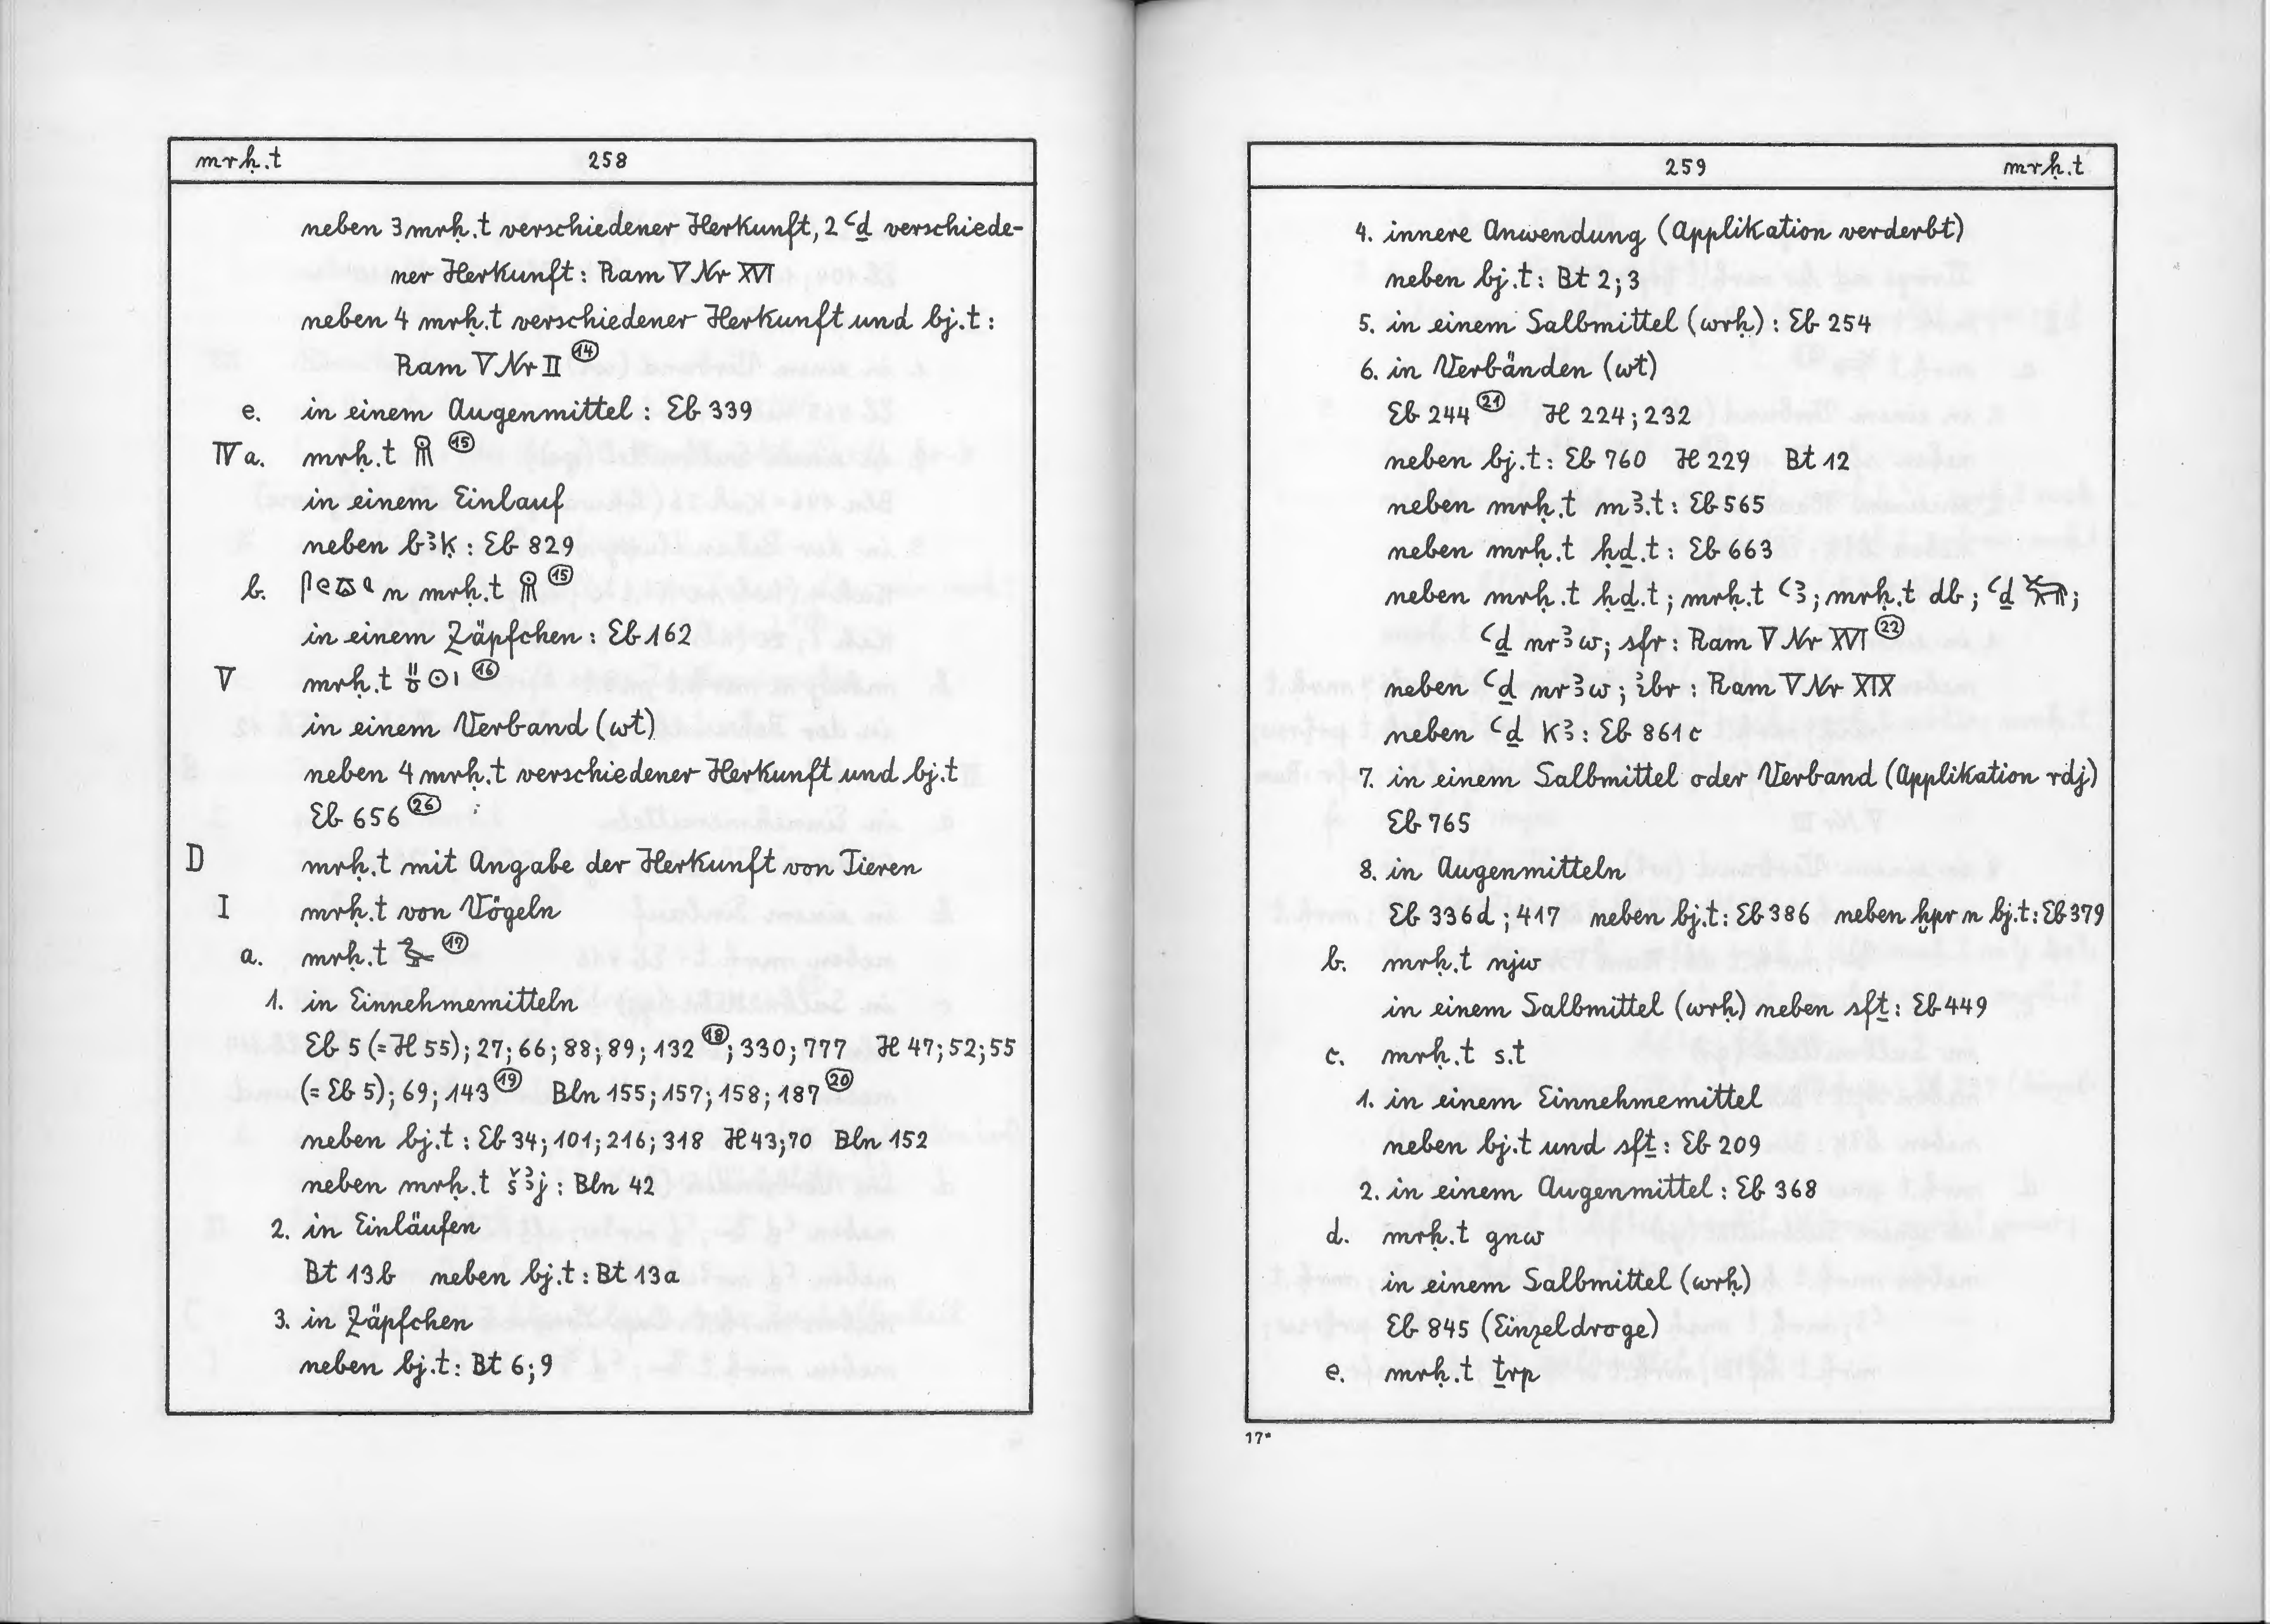 mrḥ.t 258
neben 3 mrḥ.t verschiedener Herkunft, 2 ꜥḏ verschiede-
ner Herkunft: Ram V Nr XVI
neben 4 mrḥ.t verschiedener Herkunft und bj.t:
Ram V Nr II ⑭
e. in einem Augenmittel: Eb 339
IV a. mrḥ.t ⑮
in einem Einlauf
neben bꜣḳ: Eb 829
b. n mrḥ.t ⑮
in einem Zäpfchen: Eb 162
V mrḥ.t ⑯
in einem Verband (wt)
neben 4 mrḥ.t verschiedener Herkunft und bj.t
Eb 656 ㉖
D mrḥ.t mit Angabe der Herkunft von Tieren
I mrḥ.t von Vögeln
a. mrḥ.t ⑰
1. in Einnehmemitteln
Eb 5 (= H 55); 27; 66; 88; 89; 132 ⑱; 330; 777 H 47; 52; 55
(= Eb 5); 69; 143 ⑲ Bln 155; 157; 158; 187 ⑳
neben bj.t: Eb 34; 101; 216; 318 H 43; 70 Bln 152
neben mrḥ.t šꜣj: Bln 42
2. in Einläufen
Bt 13b neben bj.t: Bt 13a
3. in Zäpfchen
neben bj.t: Bt 6; 9
259 mrḥ.t
4. innere Anwendung (Applikation verderbt)
neben bj.t: Bt 2; 3
5. in einem Salbmittel (wrḥ): Eb 254
6. in Verbänden (wt)
Eb 244 ㉑ H 224; 232
neben bj.t: Eb 760 H 229 Bt 12
neben mrḥ.t mꜣ.t: Eb 565
neben mrḥ.t ḥḏ.t: Eb 663
neben mrḥ.t ḥḏ.t; mrḥ.t ꜥꜣ; mrḥ.t db; ꜥḏ ;
ꜥḏ nrꜣw; sfr: Ram V Nr XVI ㉒
neben ꜥḏ nrꜣw; ꞽbr: Ram V Nr XIX
neben ꜥḏ kꜣ: Eb 861c
7. in einem Salbmittel oder Verband (Applikation rdj)
Eb 765
8. in Augenmitteln
Eb 336d; 417 neben bj.t: Eb 386 neben ḫpr n bj.t: Eb 379
b. mrḥ.t njw
in einem Salbmittel (wrḥ) neben sfṯ: Eb 449
c. mrḥ.t s.t
1. in einem Einnehmemittel
neben bj.t und sfṯ: Eb 209
2. in einem Augenmittel: Eb 368
d. mrḥ.t gnw
in einem Salbmittel (wrḥ)
Eb 845 (Einzeldroge)
e. mrḥ.t ṯrp
17*